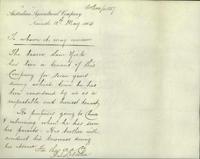 Australian Agricultural Company
Newcastle 12th May 1884
To whom it may concern
The bearer Sam York
has been a tenant of this
Company for some years
during which time he has
been considered by us as a
respectable and honest tenant
He purposes going to China
& returning when he has seen
his parents. His brother will
conduct his business during
his absence